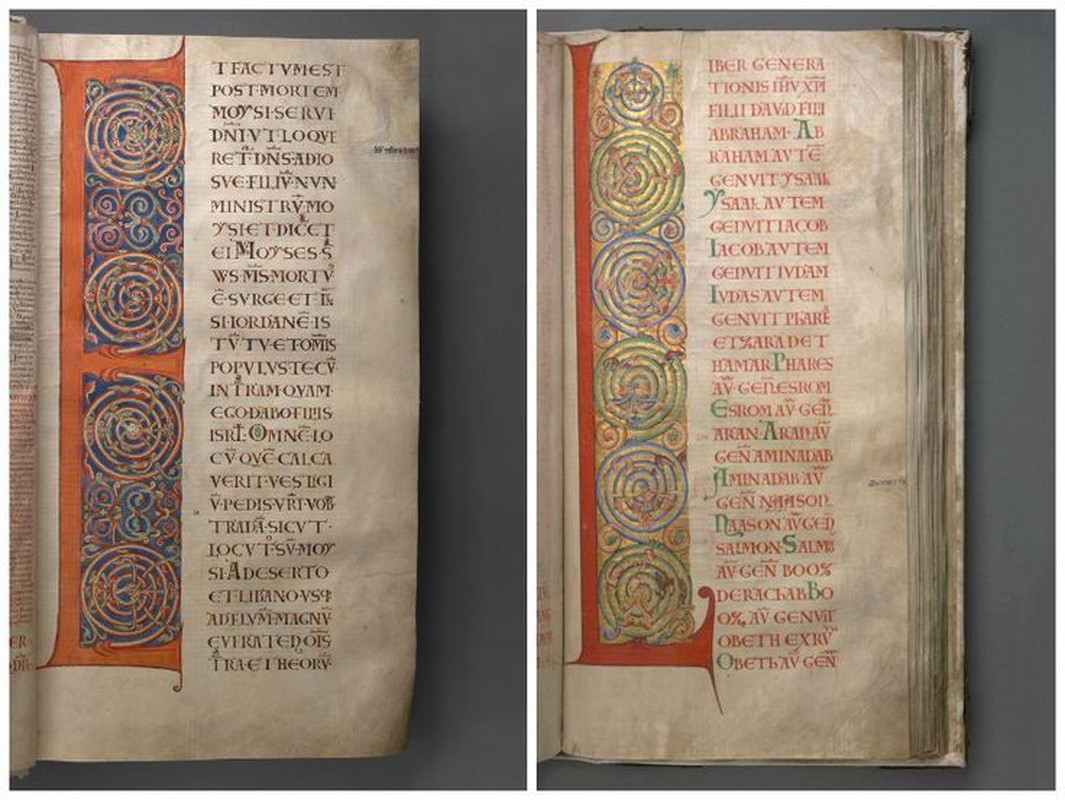 T FACTVM EST
POST MORTEM
MOYSI SERVI
DNI VT LOQVE
RET DNS ADIO
SVE FILIV NVN
MINISTRV MO
YSI ET DICET
EI MOYSES S
WS MS MORTV
E SVRGE ET
SI IORDANE IS
TV TV ET OMIS
POPVLVS TECV
IN TRAM QVAM
EGO DABO FILIIS
ISRL OMNE LO
CV QVE CALCA
VERIT VESTIGI
V PEDIS VRI VOB
TRADA SICVT
LOCVT SV MOY
SI A DESERTO
ET LIBANO VSQ
AD FLVM MAGNV
EVFRATEN OIS
TRA ETHEORV
IBER GENERA
TIONIS IHV XPI
FILII DAVID FILII
ABRAHAM AB
RAHAM AVTE
GENVIT YSAAK
YSAAK AVTEM
GENVIT IACOB
IACOB AVTEM
GENVIT IVDAM
IVDAS AVTEM
GENVIT PHARE
ET ZARA DE T
HAMAR PHARES
AV GEN ESROM
ESROM AV GEN
ARAN ARAN AV
GEN AMINADAB
AMINADAB AV
GEN NAASON
NAASON AV GEN
SALMON SALMN
AV GEN BOOZ
DE RACHAB BO
OZ AV GENVIT
OBETH EX RV
OBETH AV GEN